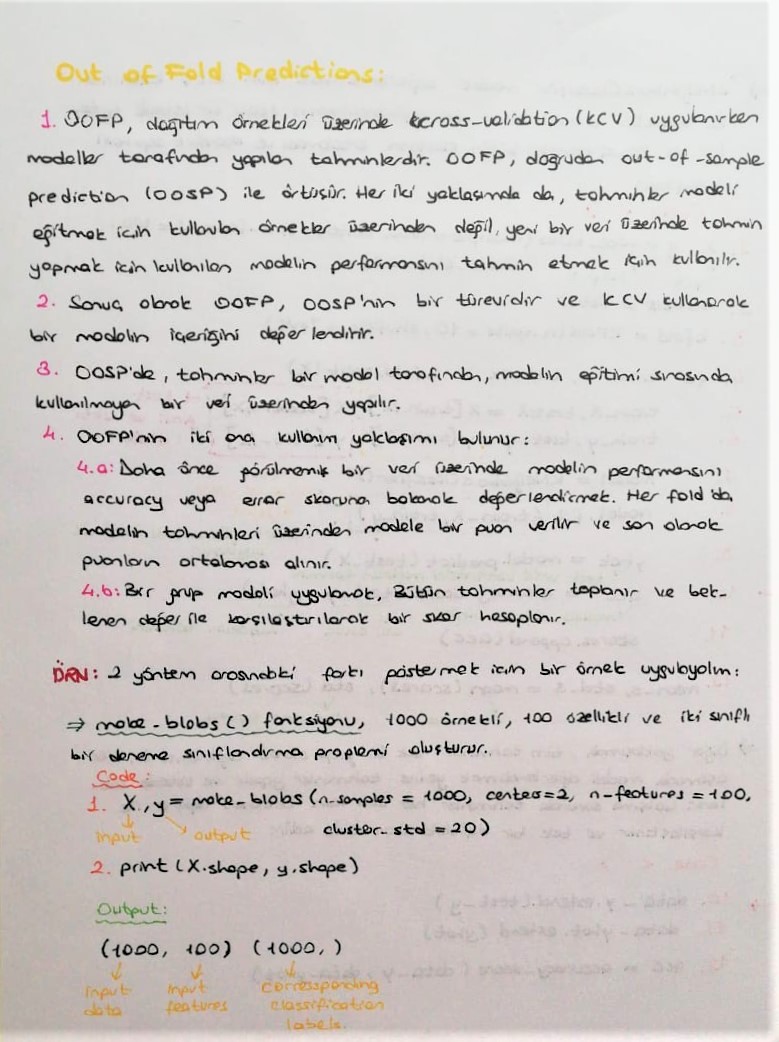 Out of Fold Predictions:
1. OOFP, dağıtım örnekleri üzerinde kcross-validation (kCV) uygulanırken
modeller tarafından yapılan tahminlerdir. OOFP, doğrudan out-of-sample
prediction (OOSP) ile örtüşür. Her iki yaklaşımda da, tahminler modeli
eğitmek için kullanılan örnekler üzerinden değil, yeni bir veri üzerinde tahmin
yapmak için kullanılan modelin performansını tahmin etmek için kullanılır.
2. Sonuç olarak OOFP, OOSP'nin bir türevidir ve KCV kullanarak
bir modelin içeriğini değerlendirir.
3. OOSP'de, tahminler bir model tarafından, modelin eğitimi sırasında
kullanılmayan bir veri üzerinden yapılır.
4. OOFP'nin iki ana kullanım yaklaşımı bulunur:
4.a: Daha önce görülmemiş bir veri üzerinde modelin performansını
accuracy veya error skoruna bakarak değerlendirmek. Her fold'da,
modelin tahminleri üzerinden modele bir puan verilir ve son olarak
puanların ortalaması alınır.
4.b: Bir grup modeli uygulamak. Bütün tahminler toplanır ve bek-
lenen değer ile karşılaştırılarak bir skor hesaplanır.
ÖRN: 2 yöntem arasındaki farkı göstermek için bir örnek uygulayalım:
⇒ make-blobs() fonksiyonu, 1000 örnekli, 100 özellikli ve iki sınıflı
bir deneme sınıflandırma proplemi oluşturur.
Code:
1. X,y = make-blobs (n-samples = 1000, centers=2, n-features = 100,
input output cluster-std = 20)
2. print (X.shape, y.shape)
Output:
(1000, 100) (1000, )
input input corresponding
data features classification
labels.